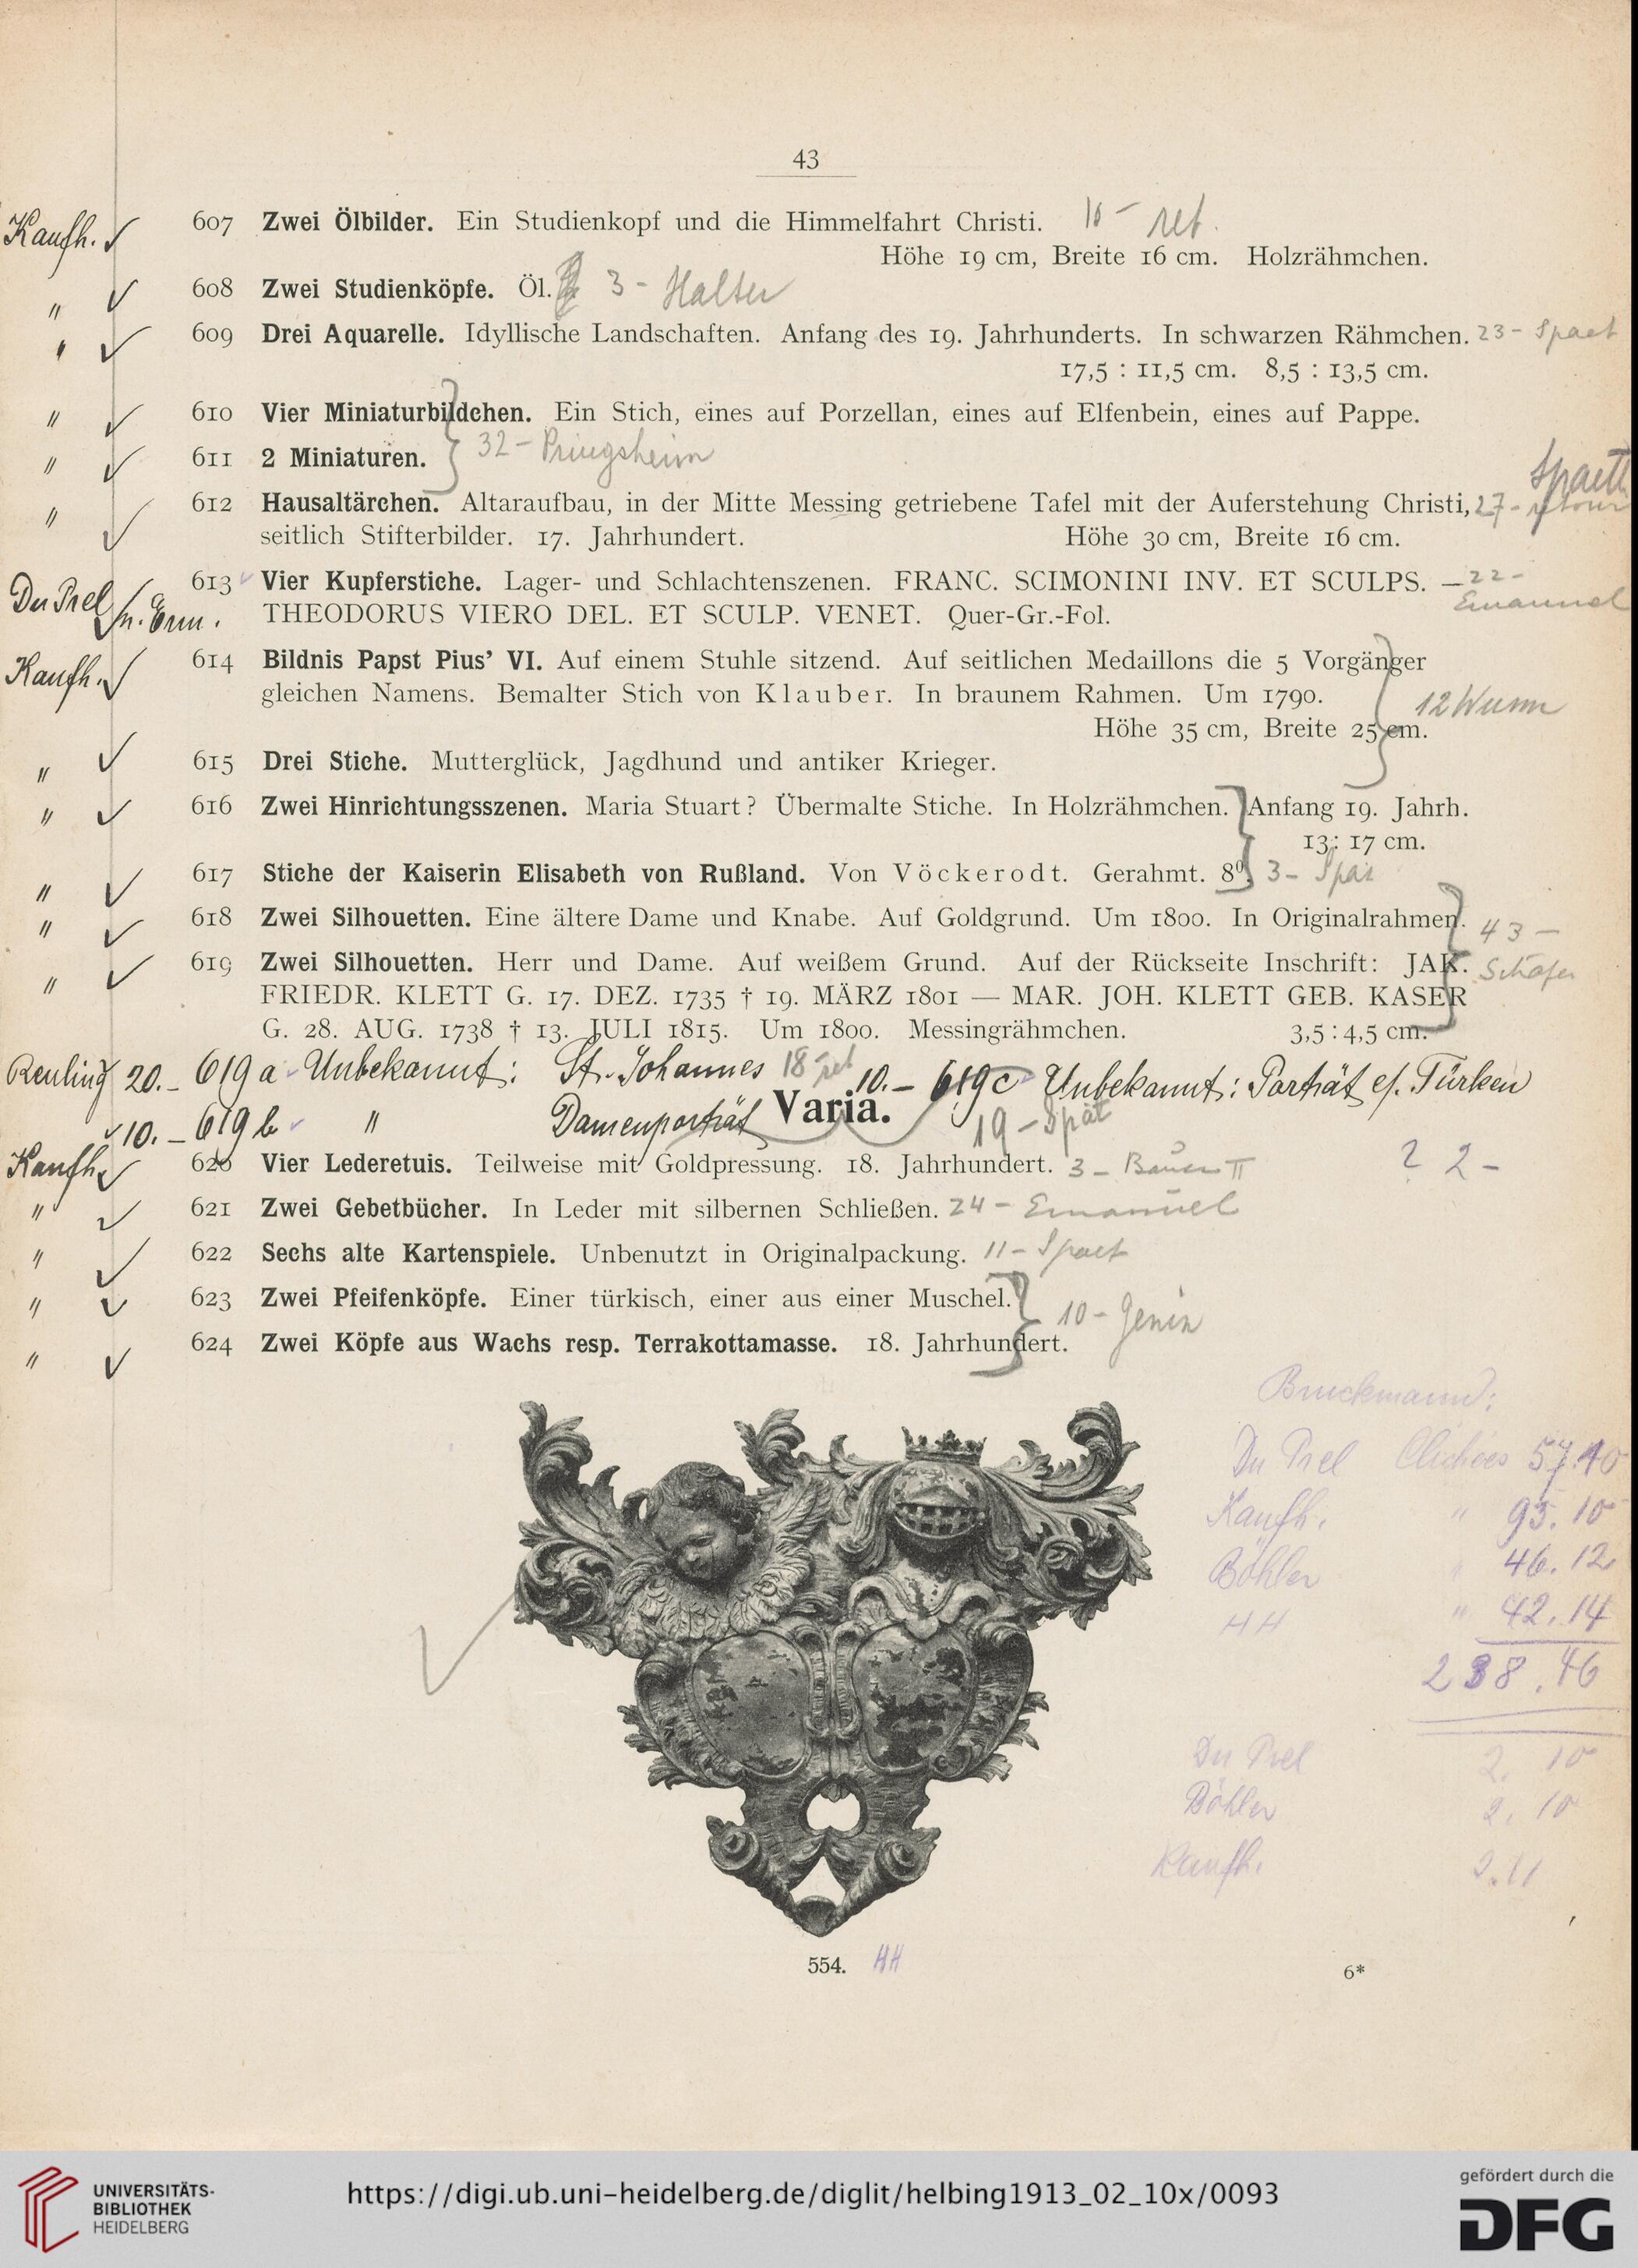 43
Kaufh. 607 Zwei Ölbilder. Ein Studienkopf und die Himmelfahrt Christi. 10 – ret.
Höhe 19 cm, Breite 16 cm. Holzrähmchen.
" 608 Zwei Studienköpfe. Öl. 3 – Halter
" 609 Drei Aquarelle. Idyllische Landschaften. Anfang des 19. Jahrhunderts. In schwarzen Rähmchen. 23 – Spaet
17,5 : 11,5 cm. 8,5 : 13,5 cm.
" 610 Vier Miniaturbildchen. Ein Stich, eines auf Porzellan, eines auf Elfenbein, eines auf Pappe.
" 611 2 Miniaturen. 32 – Pringsheim
Spaeth
" 612 Hausaltärchen. Altaraufbau, in der Mitte Messing getriebene Tafel mit der Auferstehung Christi, 27 – retour
seitlich Stifterbilder. 17. Jahrhundert. Höhe 30 cm, Breite 16 cm.
Du Prel 613 Vier Kupferstiche. Lager- und Schlachtenszenen. FRANC. SCIMONINI INV. ET SCULPS. — 22 –
THEODORUS VIERO DEL. ET SCULP. VENET. Quer-Gr.-Fol. Emanuel
Kaufh. 614 Bildnis Papst Pius' VI. Auf einem Stuhle sitzend. Auf seitlichen Medaillons die 5 Vorgänger
gleichen Namens. Bemalter Stich von Klauber. In braunem Rahmen. Um 1790. 12
Höhe 35 cm, Breite 25 cm.
" 615 Drei Stiche. Mutterglück, Jagdhund und antiker Krieger.
" 616 Zwei Hinrichtungsszenen. Maria Stuart? Übermalte Stiche. In Holzrähmchen. Anfang 19. Jahrh.
13 : 17 cm.
" 617 Stiche der Kaiserin Elisabeth von Rußland. Von Vöckerodt. Gerahmt. 8⁰. 3 –
" 618 Zwei Silhouetten. Eine ältere Dame und Knabe. Auf Goldgrund. Um 1800. In Originalrahmen. 43 –
" 619 Zwei Silhouetten. Herr und Dame. Auf weißem Grund. Auf der Rückseite Inschrift: JAK. Schäfer
FRIEDR. KLETT G. 17. DEZ. 1735 † 19. MÄRZ 1801 — MAR. JOH. KLETT GEB. KASER
G. 28. AUG. 1738 † 13. JULI 1815. Um 1800. Messingrähmchen. 3,5 : 4,5 cm.
Reuling 20.– 619 a Unbekannt: St. Johannes 18 – ret 10.– 619 c Unbekannt: Porträt e/. Türken
10.– 619 b " Damenporträt 19 – Spät
Varia.
Kaufh. 620 Vier Lederetuis. Teilweise mit Goldpressung. 18. Jahrhundert. 3 – Bauer II ? 2 –
" 621 Zwei Gebetbücher. In Leder mit silbernen Schließen. 24 – Emanuel
" 622 Sechs alte Kartenspiele. Unbenutzt in Originalpackung. 11 – Spaet
" 623 Zwei Pfeifenköpfe. Einer türkisch, einer aus einer Muschel. 10 – Genin
" 624 Zwei Köpfe aus Wachs resp. Terrakottamasse. 18. Jahrhundert.
Bruckmann:
Du Prel Clichees 57.10
Kaufh. " 93.10
Böhler " 46.12
HH " 42.14
238.46
Du Prel 2. 10
Böhler 2. 10
Kaufh. 2.11
554. HH
6*
UNIVERSITÄTS-
BIBLIOTHEK
HEIDELBERG
https://digi.ub.uni-heidelberg.de/diglit/helbing1913_02_10x/0093
gefördert durch die
DFG